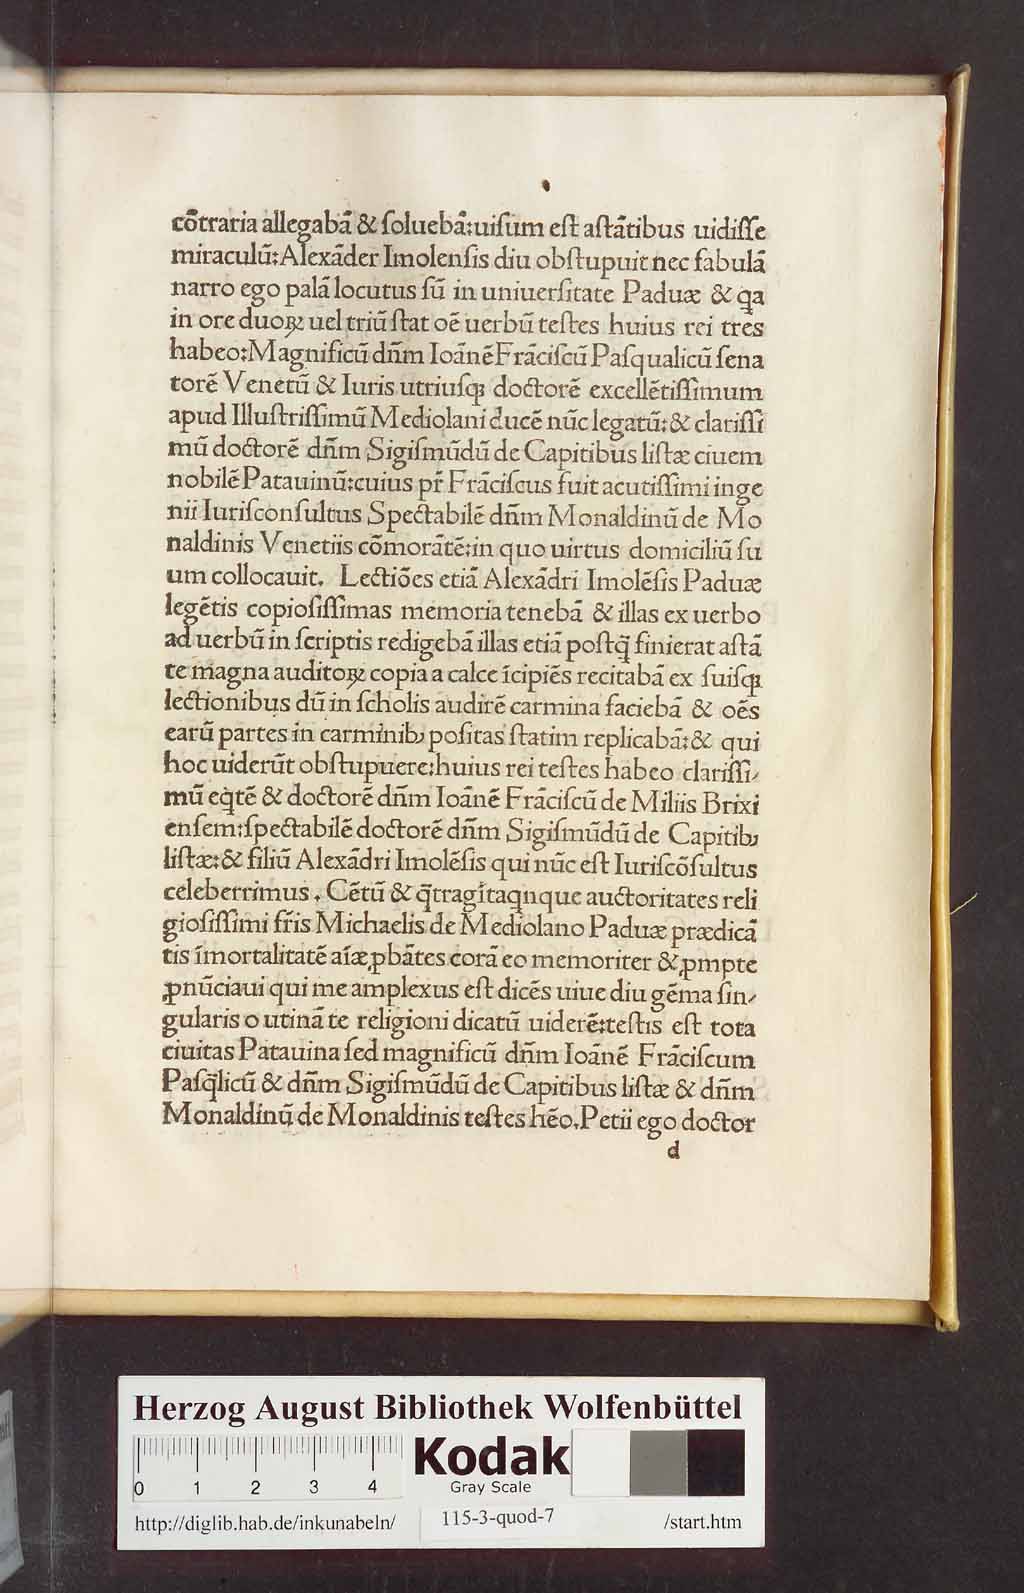 cōtraria allegabā & ſoluebā:uiſum eſt aſtātibus uidiſſe
miraculū:Alexāder Imolenſis diu obſtupuit nec fabulā
narro ego palā locutus ſū in uniuerſitate Paduæ & q̄a
in ore duoꝝ uel triū ſtat oē uerbū teſtes huius rei tres
habeo:Magnificū dn̄m Ioānē Frāciſcū Paſqualicū ſena
torē Venetū & Iuris utriuſqꝫ doctorē excellētiſſimum
apud Illuſtriſſimū Mediolani ducē nūc legatū:& clariſſi
mū doctorē dn̄m Sigiſmūdū de Capitibus liſtæ ciuem
nobilē Patauinū:cuius pr̄ Frāciſcus fuit acutiſſimi inge
nii Iuriſconſultus Spectabilē dn̄m Monaldinū de Mo
naldinis Venetiis cōmorātē:in quo uirtus domiciliū ſu
um collocauit. Lectiōes etiā Alexādri Imolēſis Paduæ
legētis copioſiſſimas memoria tenebā & illas ex uerbo
ad uerbū in ſcriptis redigebā illas etiā poſtq̄ finierat aſtā
te magna auditoꝝ copia a calce īcipiēs recitabā ex ſuiſqꝫ
lectionibus dū in ſcholis audirē carmina faciebā & oēs
earū partes in carminibꝫ poſitas ſtatim replicabā:& qui
hoc uiderūt obſtupuere:huius rei teſtes habeo clariſſi-
mū eq̄tē & doctorē dn̄m Ioānē Frāciſcū de Miliis Brixi
enſem:ſpectabilē doctorē dn̄m Sigiſmūdū de Capitibꝫ
liſtæ:& filiū Alexādri Imolēſis qui nūc eſt Iuriſcōſultus
celeberrimus. Cētū & q̄tragītaqnque auctoritates reli
gioſiſſimi fr̄is Michaelis de Mediolano Paduæ prædicā
tis īmortalitatē aīæ ꝓbātes corā eo memoriter & ꝓmpte
ꝓnūciaui qui me amplexus eſt dicēs uiue diu gēma ſin-
gularis o utinā te religioni dicatū uiderē:teſtis eſt tota
ciuitas Patauina ſed magnificū dn̄m Ioānē Frāciſcum
Paſq̄licū & dn̄m Sigiſmūdū de Capitibus liſtæ & dn̄m
Monaldinū de Monaldinis teſtes hēo. Petii ego doctor
d
Herzog August Bibliothek Wolfenbüttel
0 1 2 3 4
Kodak
Gray Scale
http://diglib.hab.de/inkunabeln/ 115-3-quod-7 /start.htm